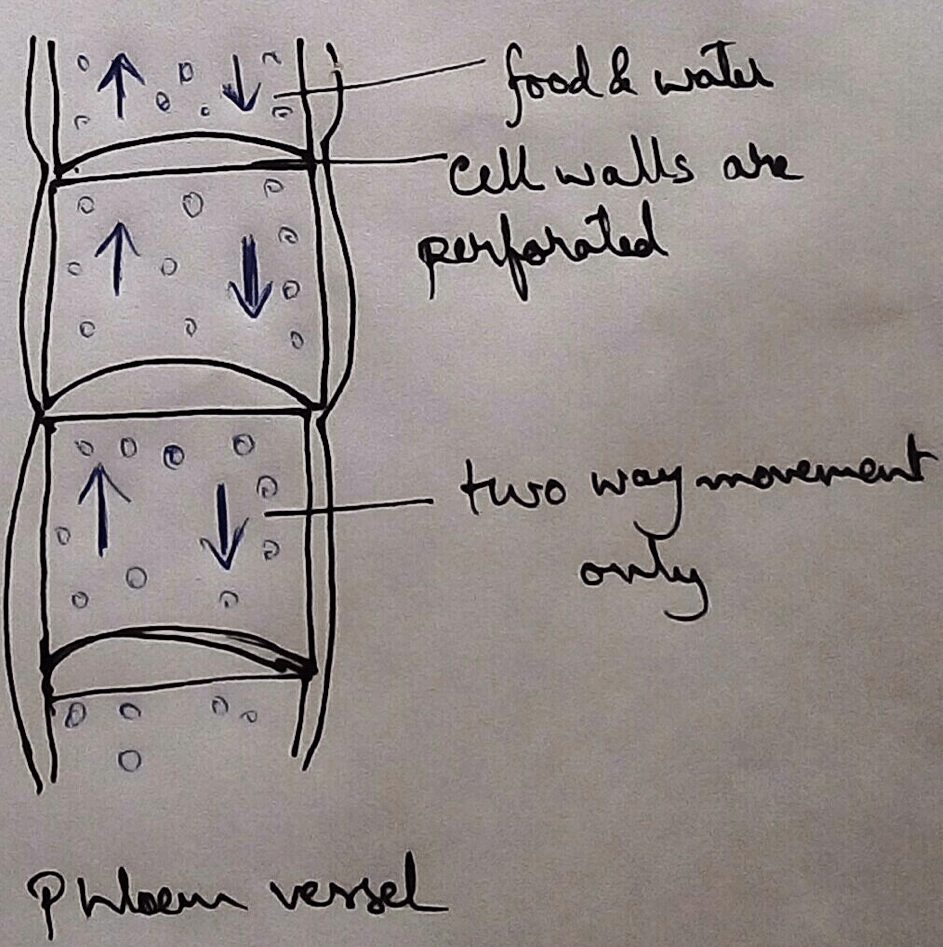 food & water
cell walls are
perforated
two way movement
only
Phloem vessel